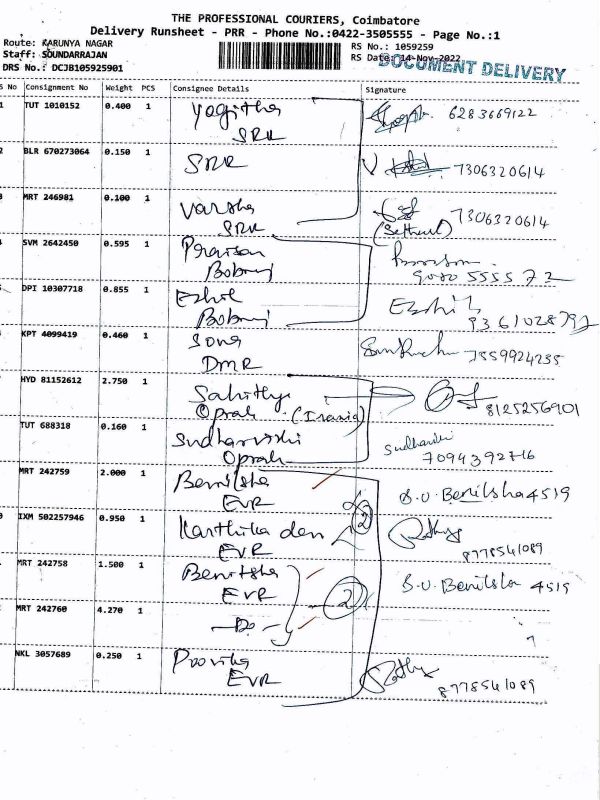 THE PROFESSIONAL COURIERS, Coimbatore
Delivery Runsheet - PRR - Phone No.:0422-3505555 - Page No.:1
Route: KARUNYA NAGAR
RS No.: 1059259
Staff: SOUNDARRAJAN
RS Date: 14-Nov-2022
DRS No.: DCJB105925901
DOCUMENT DELIVERY
S No Consignment No Weight PCS Consignee Details Signature
1 TUT 1010152 0.400 1 Yogitha 6283669122
SRR
2 BLR 670273064 0.150 1 SRR 7306320614
3 MRT 246981 0.100 1 Varsha 7306320614
SRR
SVM 2642450 0.595 1
9080 5555 72
DPI 10307718 0.855 1 Ezhil Ezhil
KPT 4099419 0.460 1 Sona 7559924235
DMR
HYD 81152612 2.750 1 Sahithya
Oprah 8125256901
TUT 688318 0.160 1
Oprah 7094392716
MRT 242759 2.000 1 Benilsha S.U. Benilsha 4519
EVR
IXM 502257946 0.950 1 Karthika den 2
EVR 8778541089
MRT 242758 1.500 1 Benilsha S.U. Benilsha 4519
EVR 2
MRT 242760 4.270 1 -Do-
NKL 3057689 0.250 1
EVR 8778541089